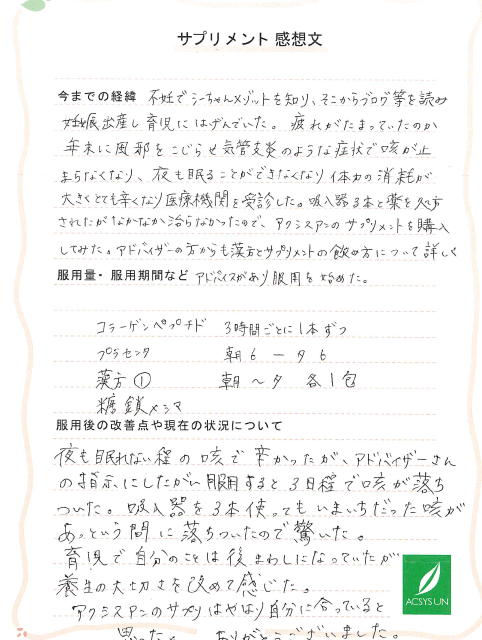 サプリメント 感想文
今までの経緯 不妊でシーちゃんメソットを知り、そこからブログ等を読み
妊娠出産し育児にはげんでいた。疲れがたまっていたのか
年末に風邪をこじらせ気管支炎のような症状で咳が止
まらなくなり、夜も眠ることができなくなり体力の消耗が
大きくとても辛くなり医療機関を受診した。吸入器3本と薬を処方
されたがなかなか治らなかったので、アクシスアンのサプリメントを購入
してみた。アドバイザーの方からも漢方とサプリメントの飲み方について詳しく
服用量・服用期間など アドバイスがあり服用を始めた。
コラーゲンペプチド 3時間ごとに1本ずつ
プラセンタ 朝6 ー 夕6
漢方① 朝〜夕 各1包
糖鎖
服用後の改善点や現在の状況について
夜も眠れない程の咳で辛かったが、アドバイザーさん
の指示にしたがい服用すると3日程で咳が落ち
ついた。吸入器を3本使ってもいまいちだった咳が
あっという間に落ちついたので驚いた。
育児で自分のことは後まわしになっていたが
養生の大切さを改めて感じた。
アクシスアンのサプリはやはり自分に合っていると
思った。 ありがとうございました。
ACSYS UN